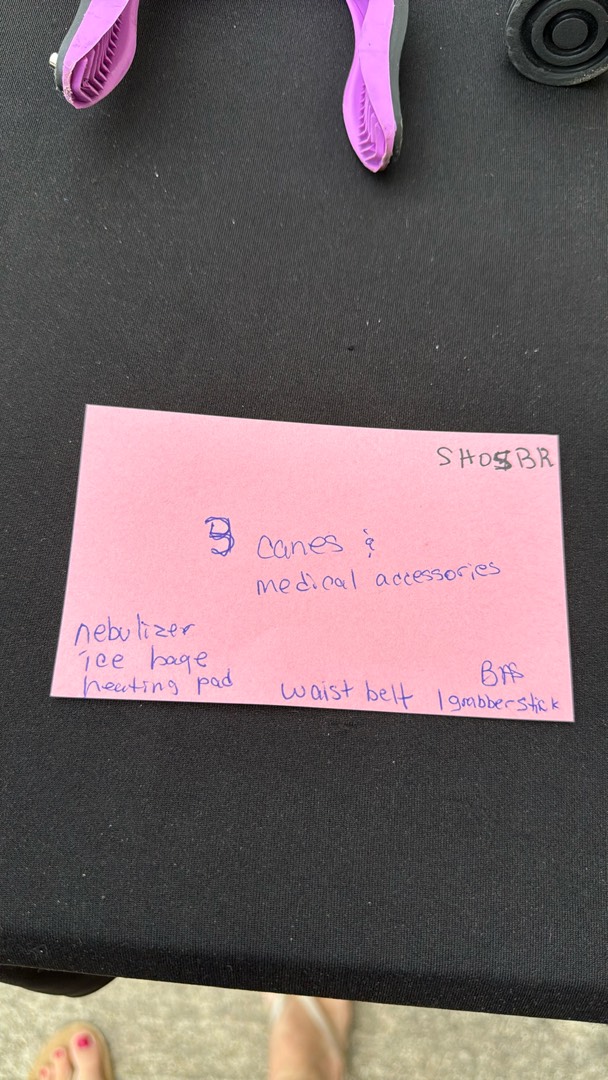 SHOSBR
3 canes &
medical accessories
nebulizer
ice bage
heating pad
waist belt
1 grabber stick